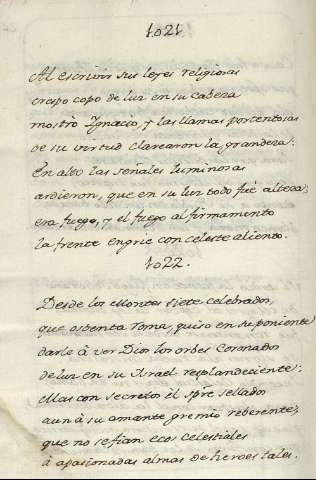 1021
Al escrivir sus leyes religiosas
crespo copo de luz en su cabeza
mostró Ygnacio, y las llamas portentosas
de su virtud clarearon la grandeza:
En alto las señales luminosas
ardieron, que en su luz todo fué alteza;
era fuego, y el fuego al firmamento
la frente engrie con celeste aliento.
1022.
Desde los Montes siete celebrados,
que ostenta Roma, quiso en su poniente
darle à ver Dios los orbes Coronados
de luz en su Israel resplandeciente;
Mas con secretos el spre sellados
aun à su amante gremio reberente,
que no se fian ecos celestiales
à apasionadas almas de heroes tales.